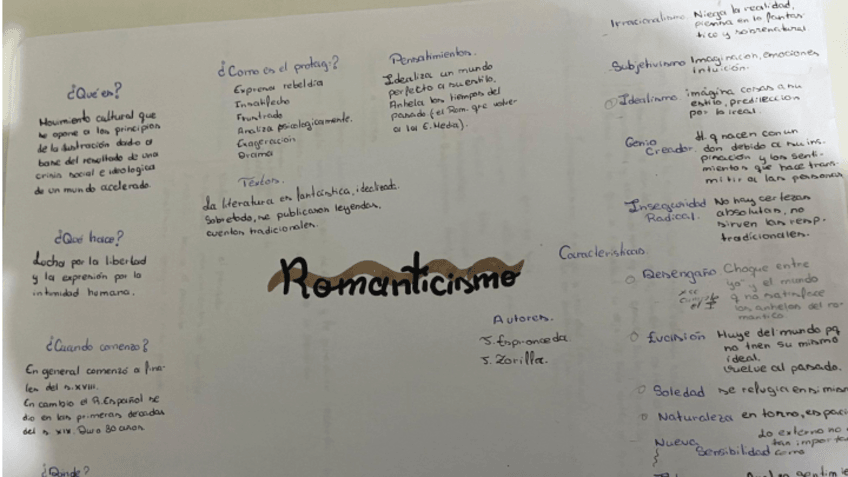 ¿Qué es?
Movimiento cultural que
se opone a los principios
de la ilustración dado a
base del resultado de una
crisis social e ideologica
de un mundo acelerado.
¿Qué hace?
Lucha por la libertad
y la expresión por la
intimidad humana.
¿Cuando comenzo?
En general comenzó a fina-
les del s.XVIII.
En cambio el R.Español se
dio en las primeras decadas
del s. XIX. Duro 30 años.
¿Donde?
¿Como es el protag.?
Expresa rebeldía
Insatisfecho
Frustrado
Analiza psicologicamente.
Exageración
Drama
Textos.
La literatura es fantástica, idealizada.
Sobretodo, se publicaron leyendas,
cuentos tradicionales.
Pensamientos.
Idealiza un mundo
perfecto a su estilo.
Anhela los tiempos del
pasado (el Rom. que volver
a la E.Media).
Romanticismo
Autores.
J. Espronceda.
J. Zorilla.
Caracteristicas.
Irracionalismo. Niega la realidad,
piensa en lo fantas-
tico y sobrenatural.
Subjetivismo Imaginacion, emociones
intuición.
Idealismo. imágina cosas a su
estilo, predileccion
por lo ireal.
Genio
Creador. H. q nacen con un
don debido a su ins-
piración y los senti-
mientos que hace trans-
mitir a las personas
Inseguridad
Radical. No hay certezas
absolutas, no
sirven las resp.
tradicionales.
Desengaño Choque entre
"yo" y el mundo
q no satisface
los anhelos del ro-
mantico.
Evasión Huye del mundo pq
no tnen su mismo
ideal.
Vuelve al pasado.
Soledad se refugia en si mism
Naturaleza en torno, espaci
Lo externo no
tan import
Nueva
Sensibilidad como